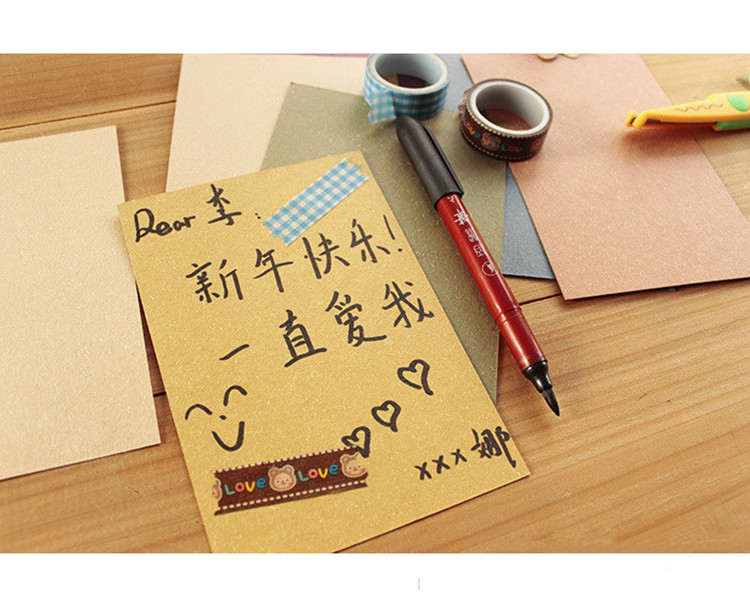 Dear 李:
新年快乐!
一直爱我
xxx娜
Love Love
Love